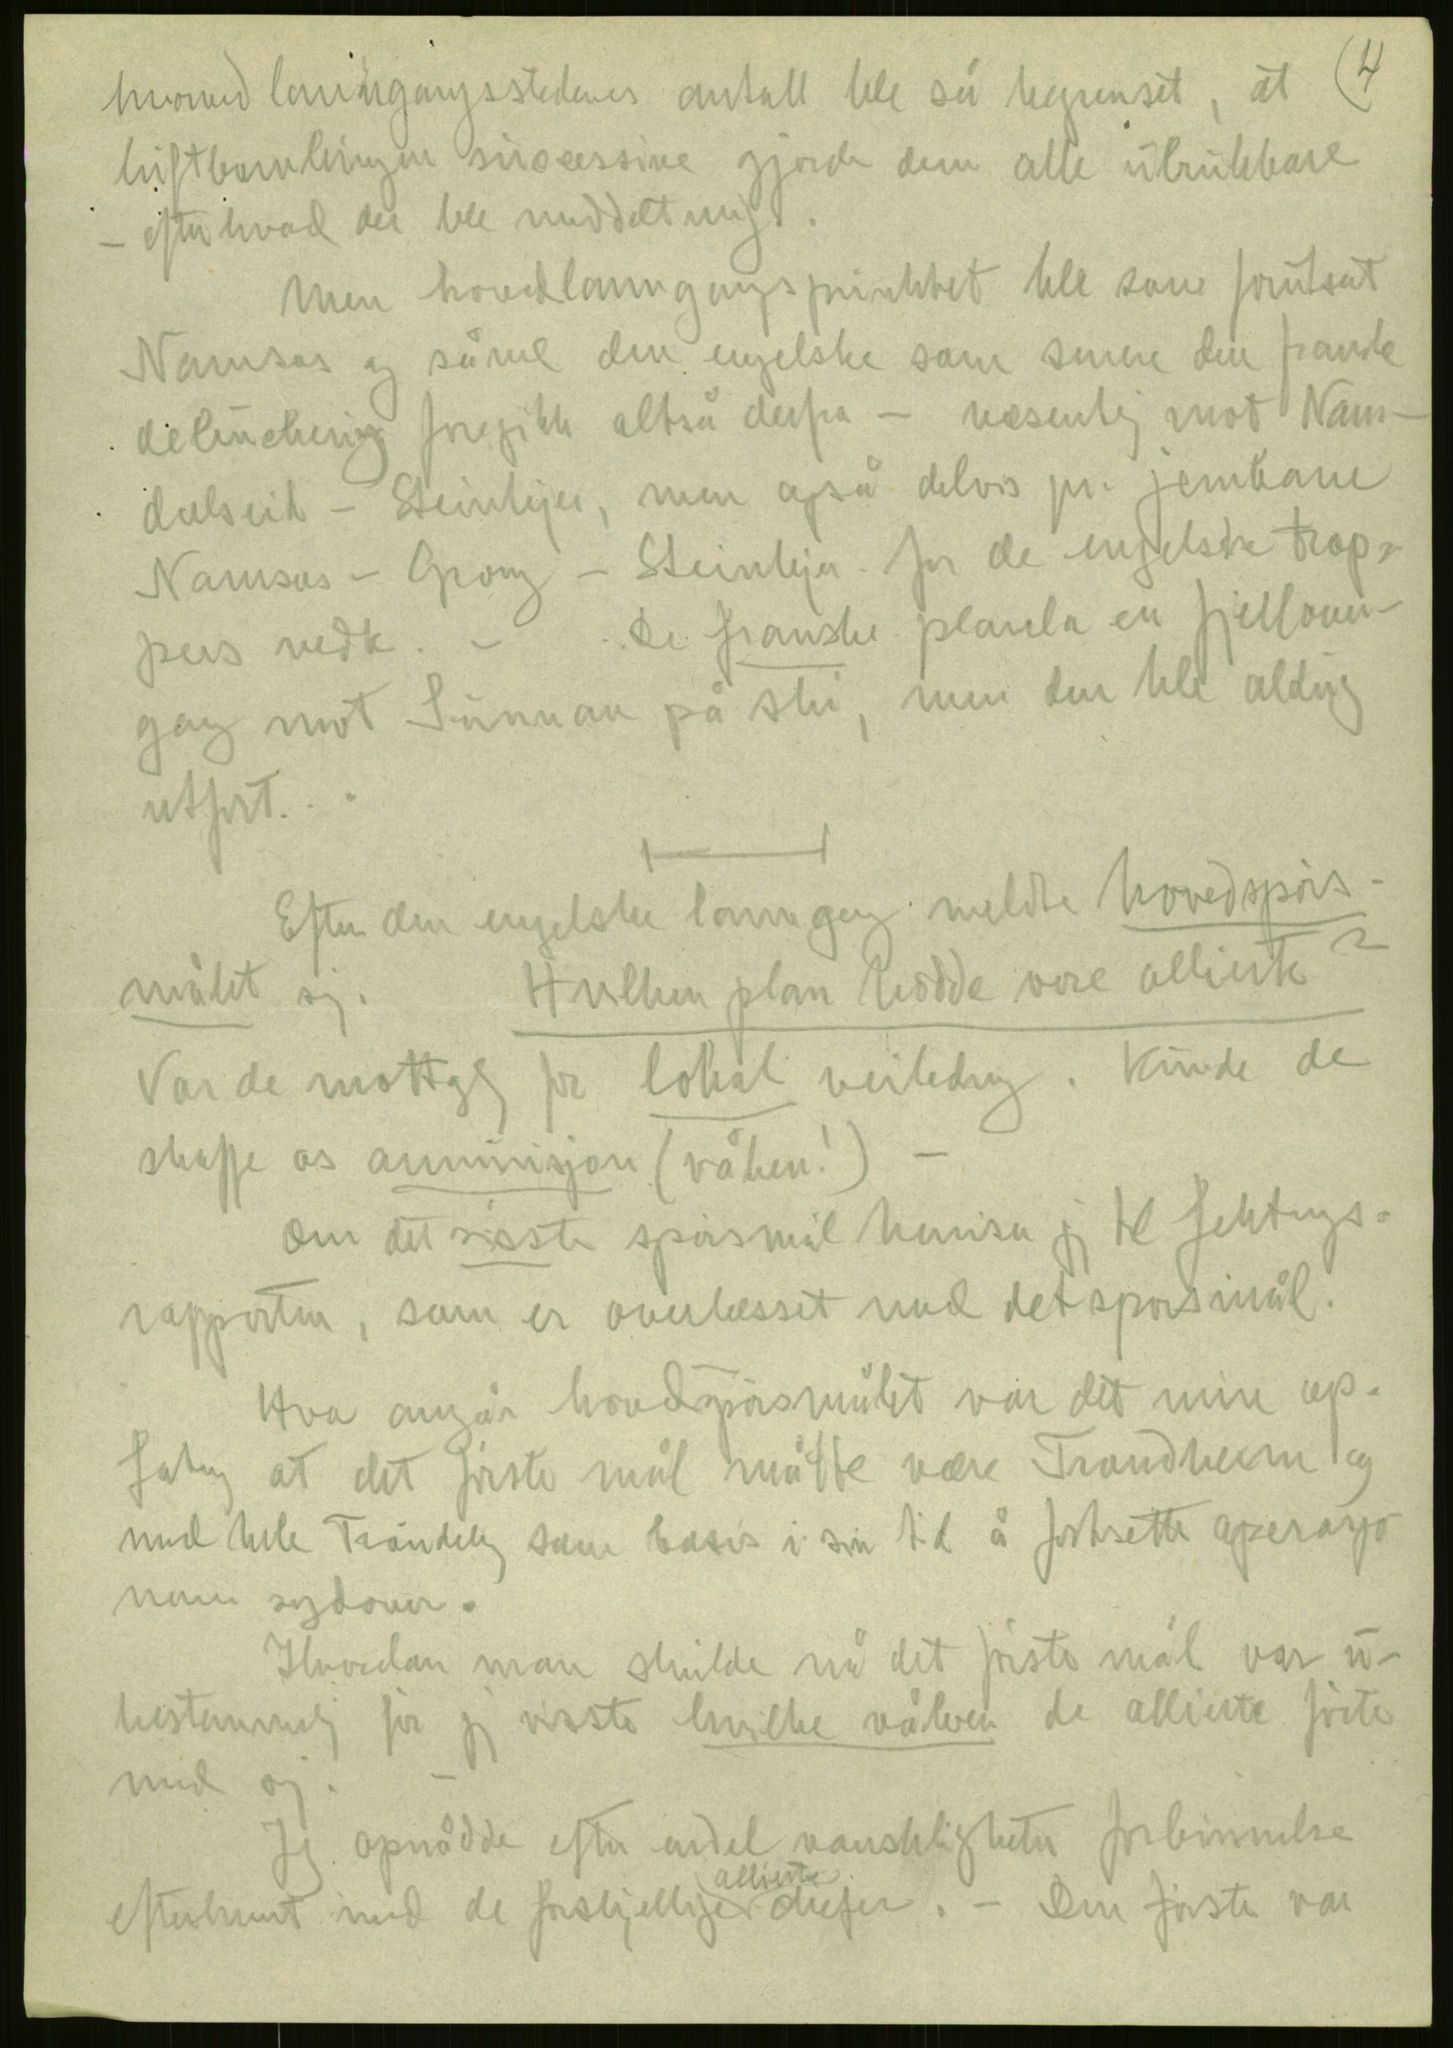 (4
hvorved landgangsstedenes antall ble så begrenset, at
luftbombingen successive gjorde dem alle ubrukbare
– efter hvad der ble meddelt mig.
Men hovedlandgangspunktet ble som forutsat
Namsos og såvel den engelske som senere den franske
debuchering foregikk altså derfra – væsentlig mot Nam-
dalseid – Steinkjer, men også delvis pr. jernbane
Namsos – Grong – Steinkjer for de engelske trop-
pers vedk. – De franske planela en fjellover-
gang mot Sunnan på ski, men den ble aldrig
utført.
Efter den engelske landgang meldte hovedspørs-
målet sig. Hvilken plan hadde våre allierte?
Var de mottaglig for lokal veiledning. Kunde de
skaffe os ammunisjon (våben!) –
Om det siste spørsmål henviser jeg til fektnings-
rapporten, som er overlesset med det spørsmål.
Hva angår hovedspørsmålet var det min op-
fatning at det første mål måtte være Trondheim og
med hele Trøndelag som basis i sin tid å fortsette operasjo
nene sydover.
Hvordan man skulde nå det første mål var u-
bestemmelig før jeg visste hvilke våben de allierte førte
med sig. –
Jeg opnådde efter endel vanskligheter forbinnelse
efterhvert med de forskjellige allierte chefer. – Den første var